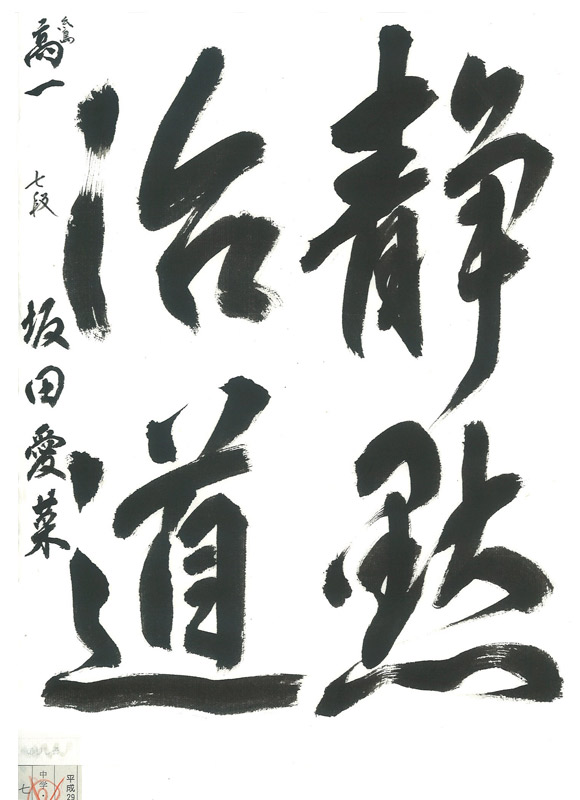 静黙
治道
高一 七段 坂田愛菜
平成29
中学・
七